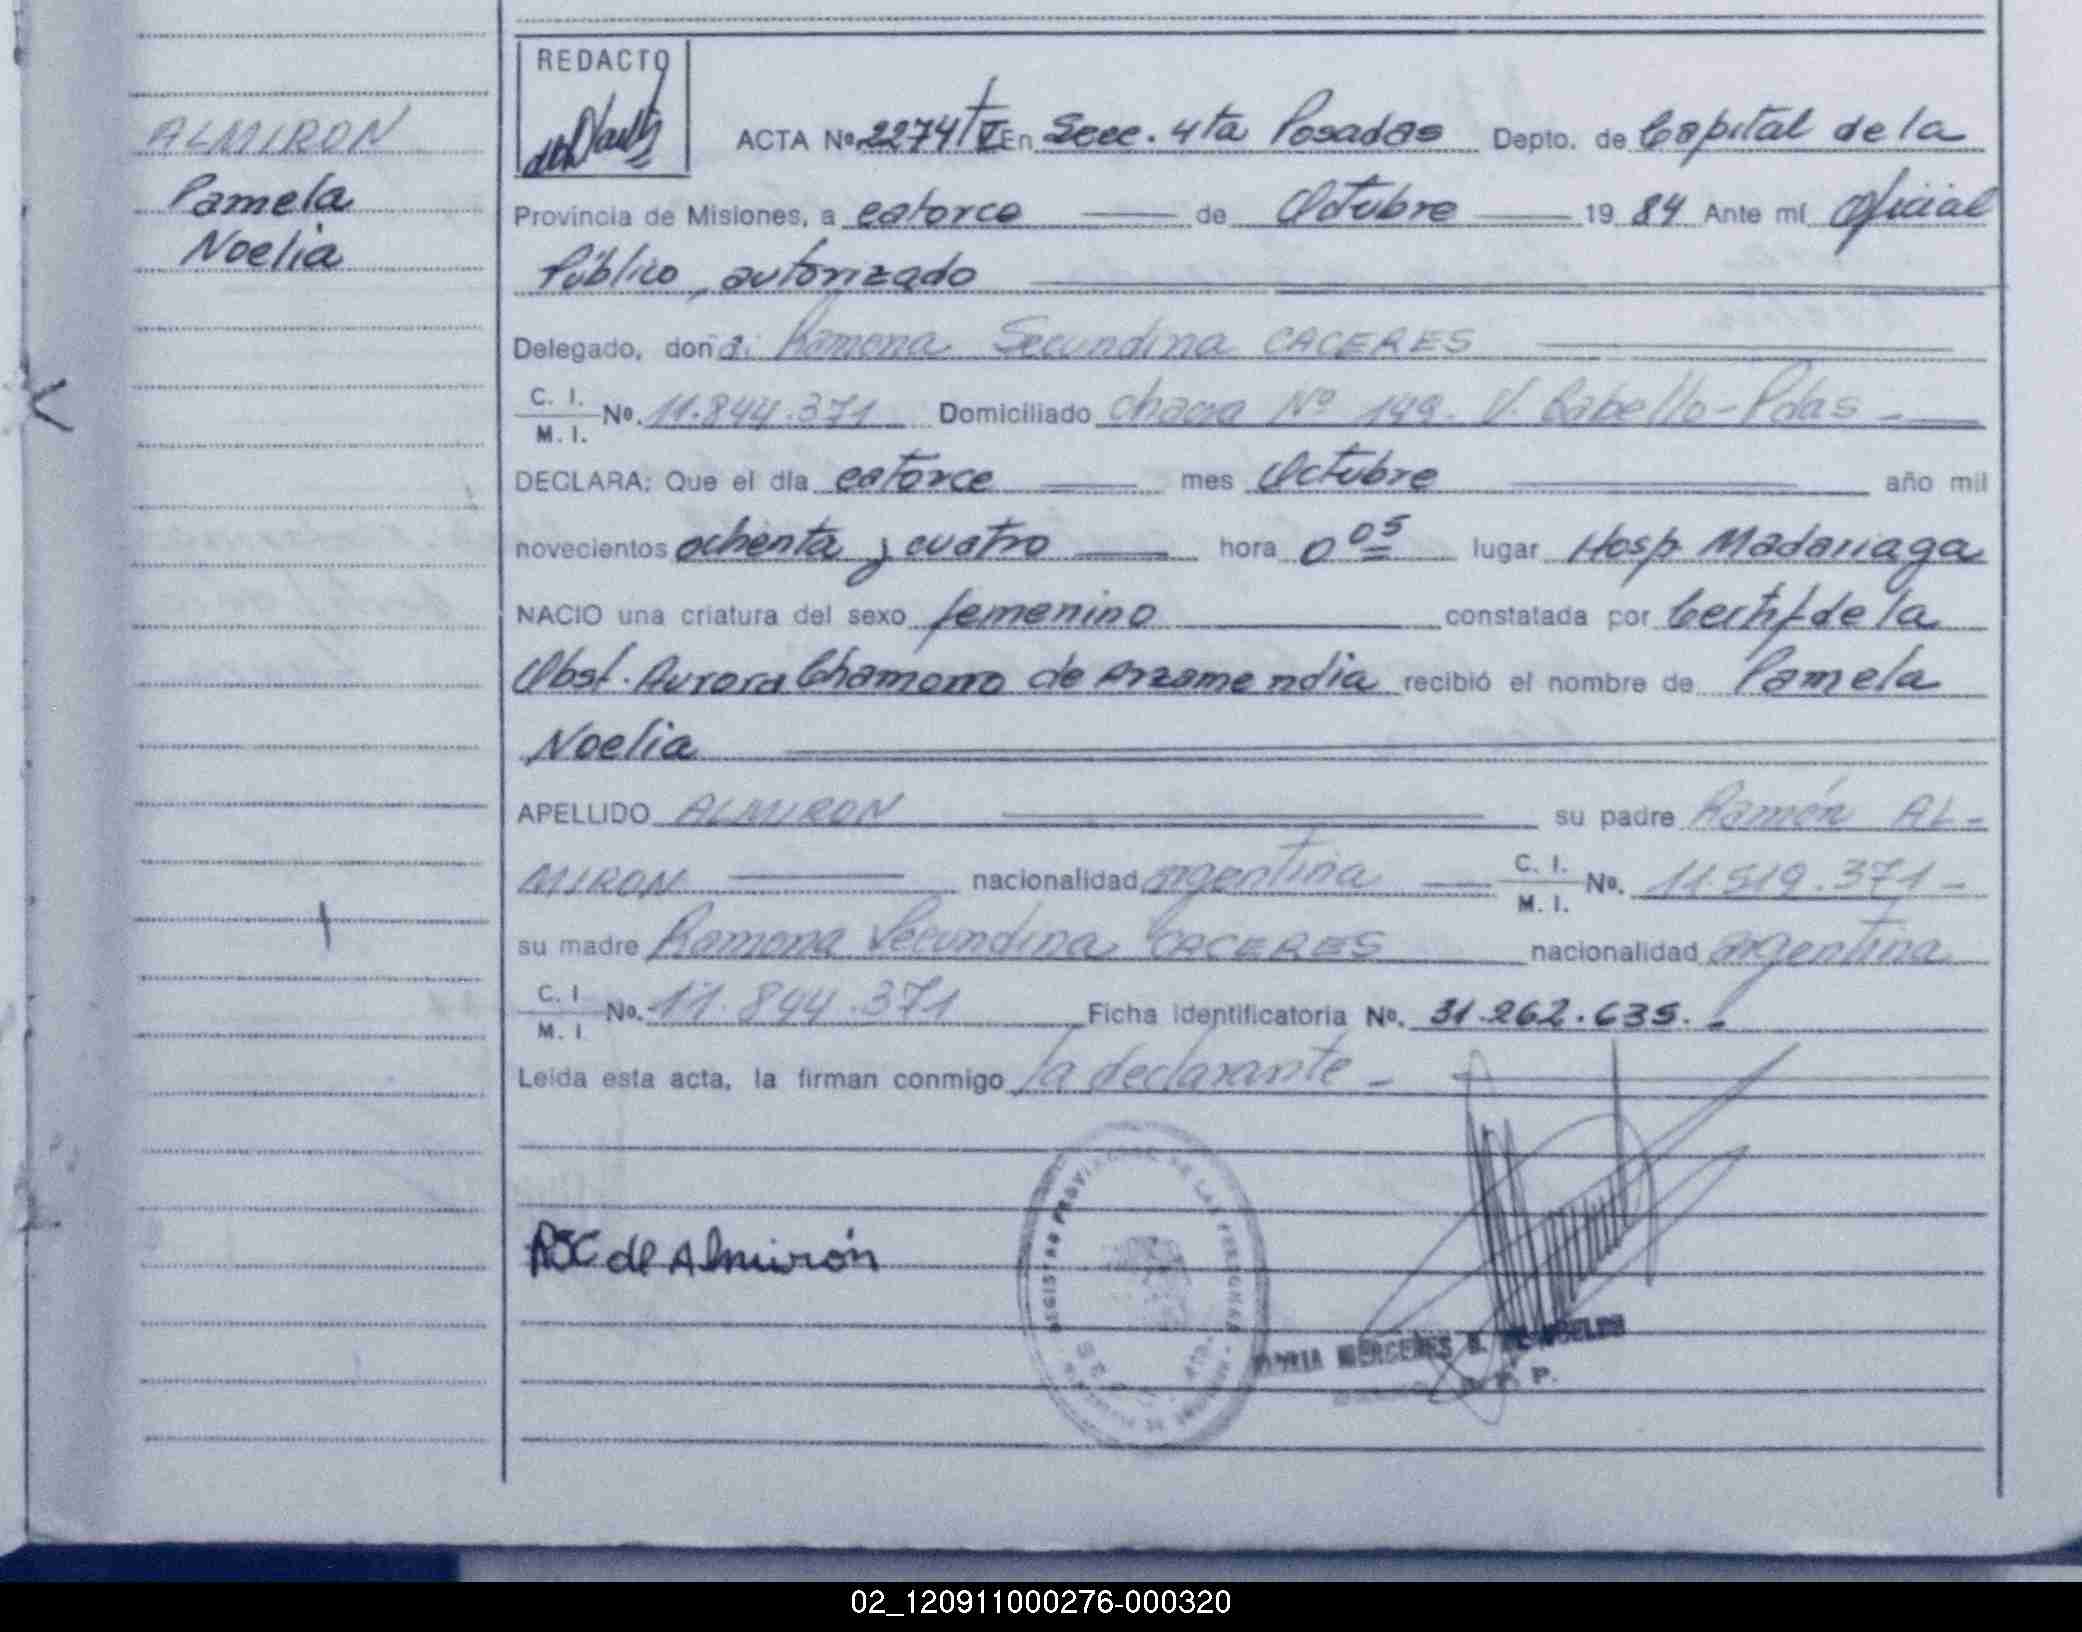 ALMIRON
Pamela
Noelia
REDACTO
ACTA Nº 2274/V En Secc. 4ta Posadas Depto. de Capital de la
Provincia de Misiones, a catorce de Octubre 19 84 Ante mí Oficial
Público, autorizado
Delegado, doña. Ramona Secundina CACERES
C. I. / M. I. Nº. 11.844.371 Domiciliado chacra Nº 199. V. Cabello-Pdas -
DECLARA: Que el día catorce mes Octubre año mil
novecientos ochenta y cuatro hora 0 05 lugar Hosp. Madariaga
NACIO una criatura del sexo femenino constatada por Certif de la
Obst. Aurora Chamorro de Arzamendia recibió el nombre de Pamela
Noelia
APELLIDO ALMIRON su padre Ramón AL-
MIRON nacionalidad argentina C. I. / M. I. Nº. 11.519.371-
su madre Ramona Secundina CACERES nacionalidad argentina
C. I / M. I Nº. 11.844.371 Ficha identificatoria Nº. 31.262.635.-
Leída esta acta, la firman conmigo la declarante -
RSC de Almirón
REGISTRO PROVINCIAL DE LAS PERSONAS
MERCEDES
02_120911000276-000320